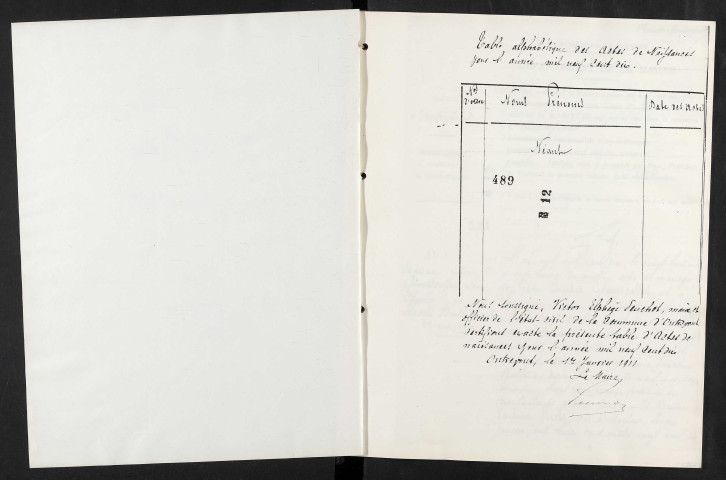 Table alphabétique des Actes de Naissances
pour l'année mil neuf cent dix.
Nos d'ordre
Noms Prénoms
Date des Actes
Néant
489
12
Nous soussigné, Victor Elphège, maire et
officier de l'état civil de la Commune d'Outrepont
Certifions exacte la présente table d'Actes de
naissances pour l'année mil neuf cent dix
Outrepont, le 1er Janvier 1911
Le Maire,